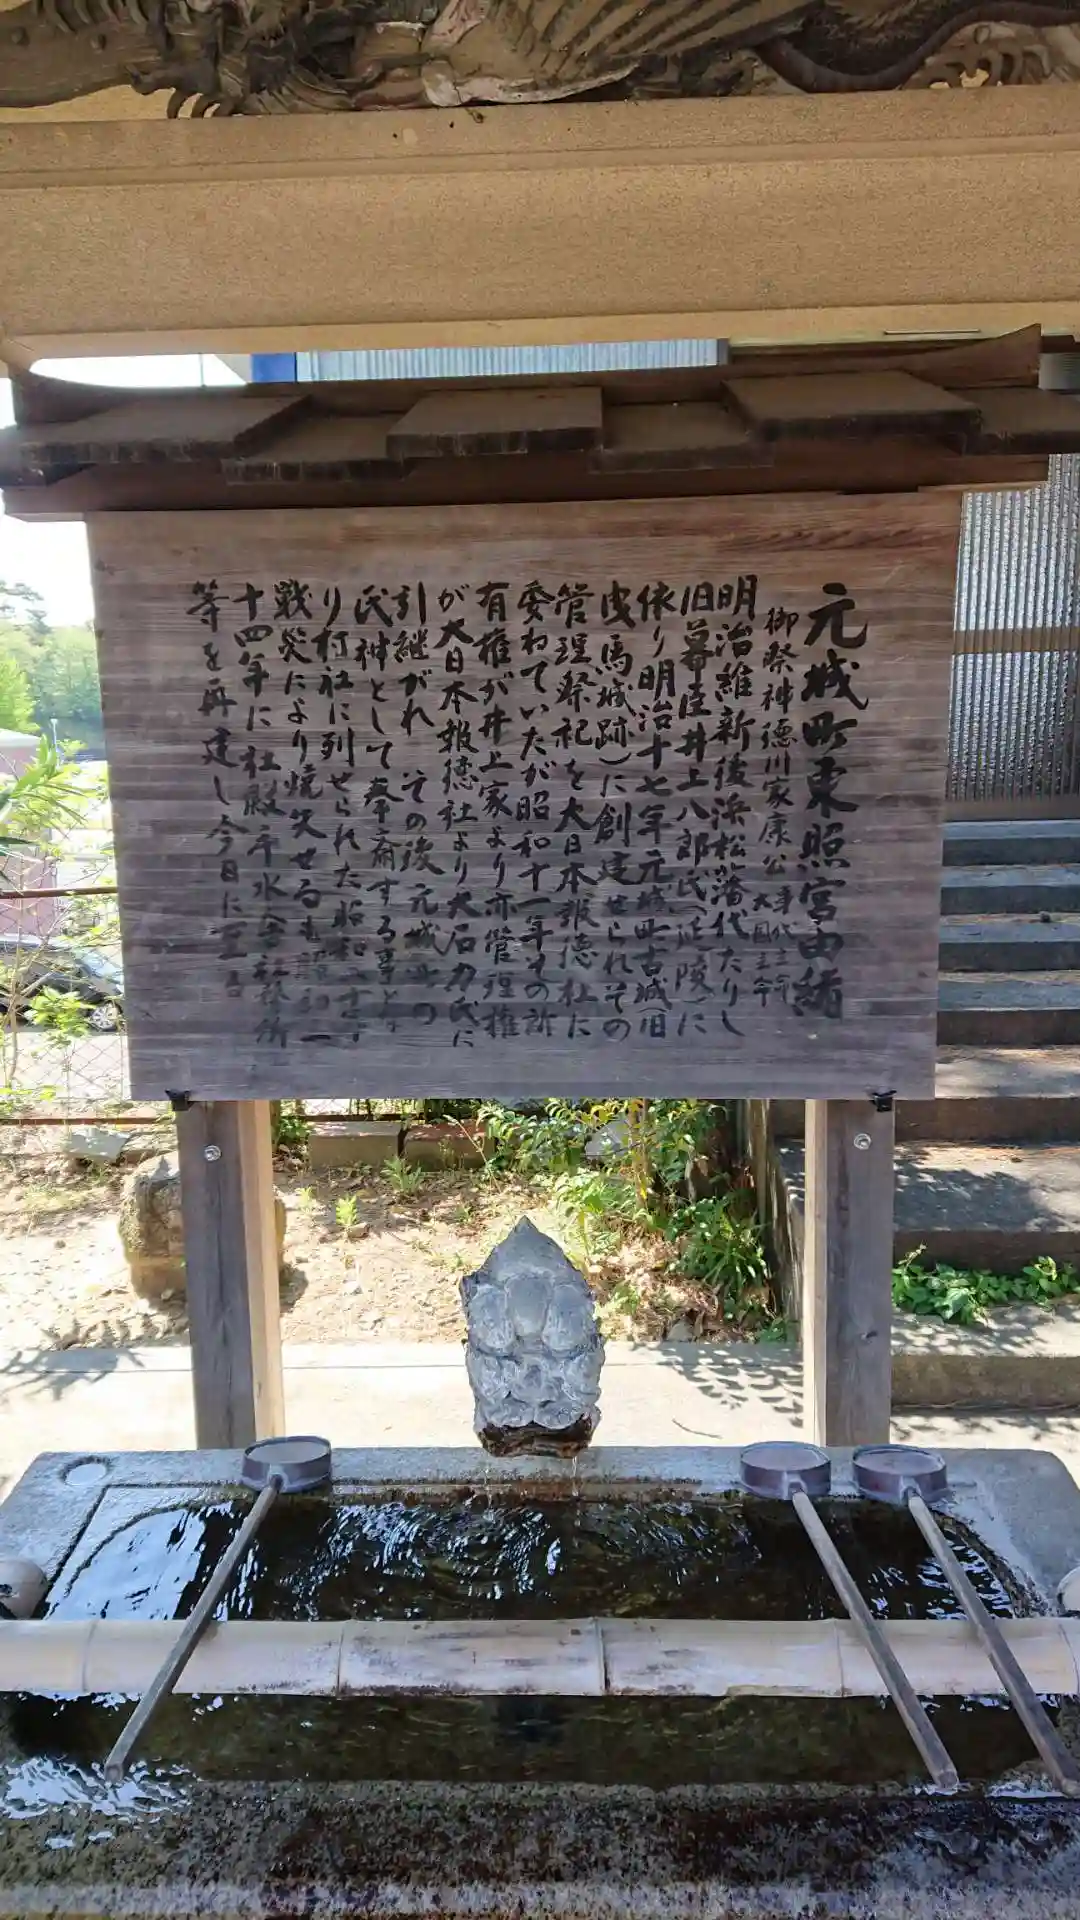 元城町東照宮由緒
御祭神徳川家康公 事代主命
大国主命
明治維新後浜松藩代たりし
旧幕臣井上八郎氏(延陵)に
依り明治十七年元城町古城(旧
曳馬城跡)に創建せられその
管理祭祀を大日本報徳社に
委ねていたが昭和十一年その所
有権が井上家より亦管理権
が大日本報徳社より大石力氏に
引継がれ その後元城町の
氏神として奉斎する事と
り村社に列せられた昭和二十
戦災により焼失せるも昭和三
十四年に社殿手水舎社務所
等を再建し今日に至る